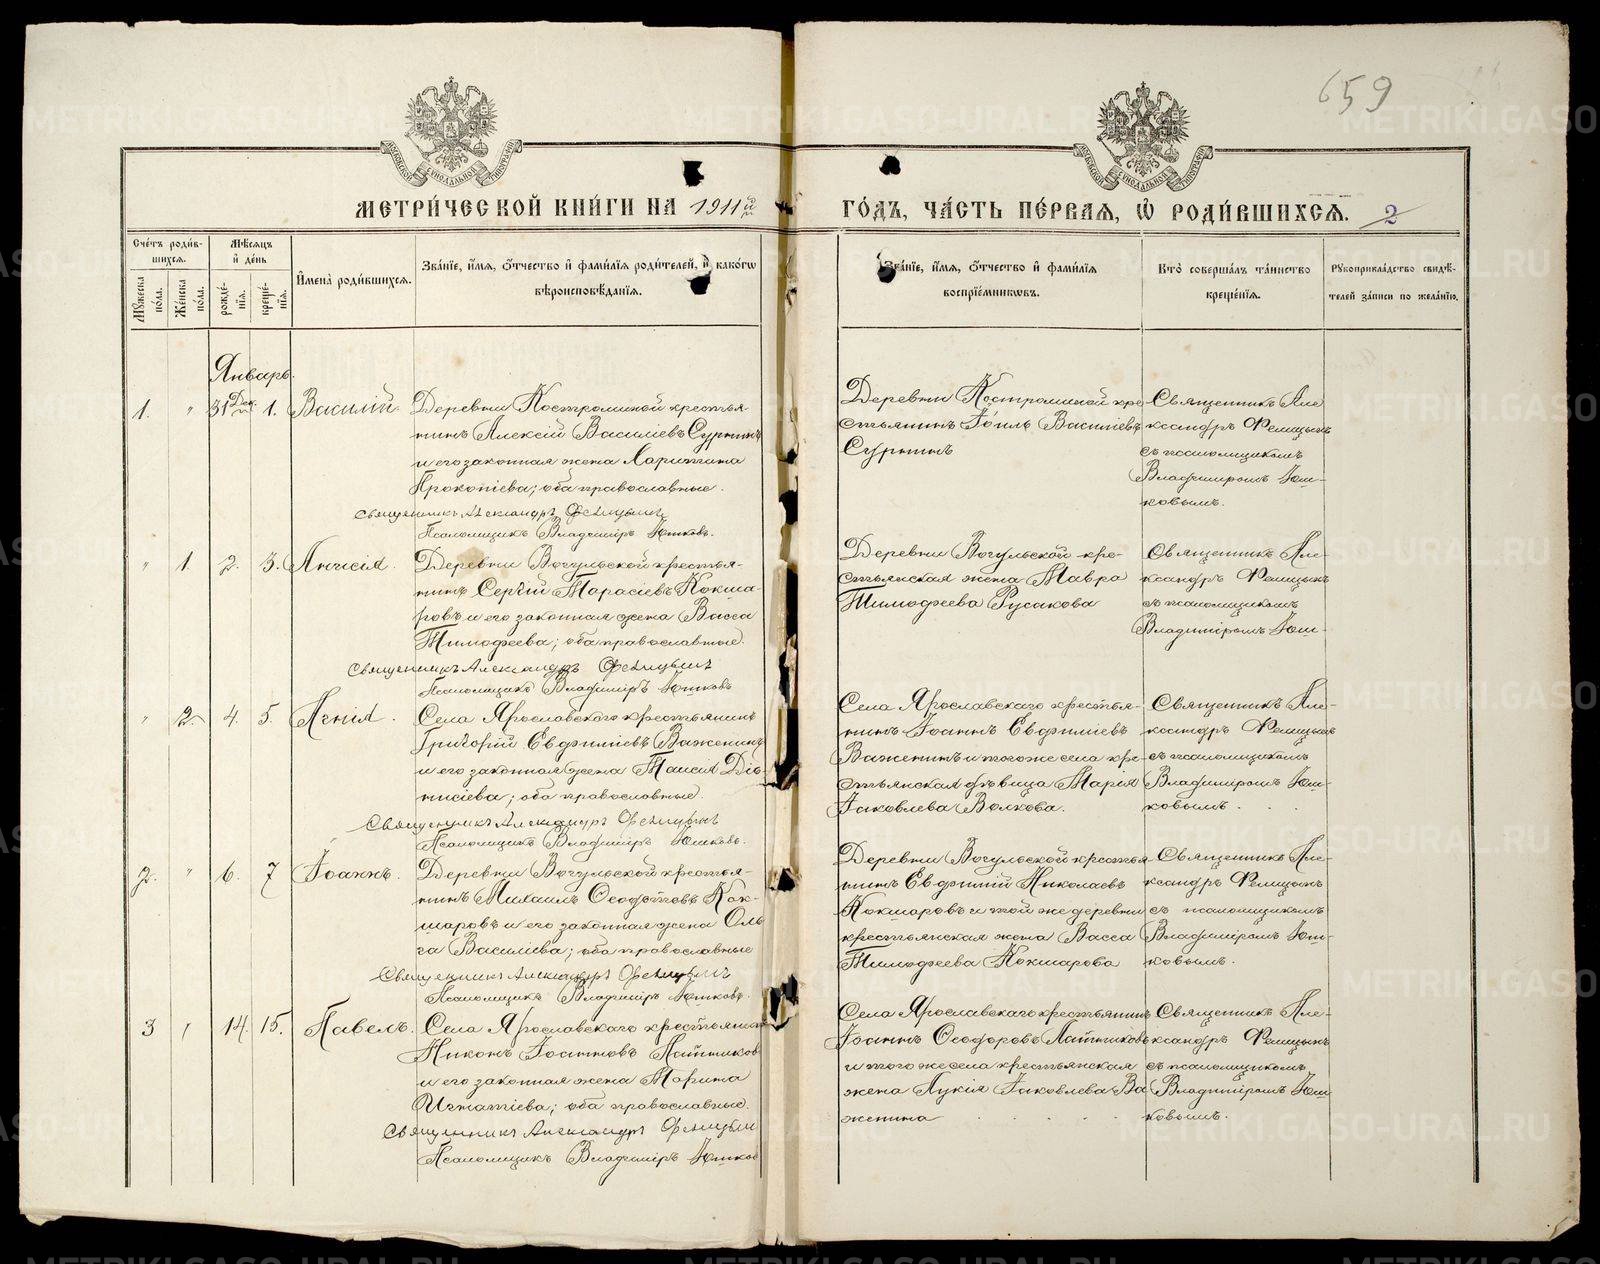 659
МЕТРИ́ЧЕСКОЙ КНИ́ГИ НА 1911 й
ГО́ДЪ, ЧА́СТЬ ПЕ́РВАЯ, Ѡ РОДИ́ВШИХСѦ.
2
Сче́тъ роди́в-
шихсѧ.
Мѣ́сѧцъ
и҆ де́нь
Мꙋ́жеска
по́ла.
Же́нска
по́ла.
рожде́-
нїѧ.
креще́-
нїѧ.
И҆мена̀ роди́вшихсѧ.
Зва́нїе, и҆́мѧ, ѻ҆́тчество и҆ фами́лїѧ роди́телей, и҆ како́гѡ
вѣроисповѣ́данїѧ.
Зва́нїе, и҆́мѧ, ѻ҆́тчество и҆ фами́лїѧ
воспрїе́мникѡвъ.
Кто̀ соверша́лъ та́инство
креще́нїѧ.
Рꙋкоприкла́дство свидѣ́-
телей за́писи по жела́нїю.
Январь.
1. " 31 Дек. 1. Василій.
Деревни Костроминой крестья-
нинъ Алексій Василіевъ Сурнинъ
и его законная жена Харитина
Прокопіева; оба православные.
Священникъ Александръ Фелицынъ
Псаломщикъ Владиміръ Юшковъ.
Деревни Костроминой кре-
стьянинъ Іоиль Василіевъ
Сурнинъ
Священникъ Але
ксандръ Фелицынъ
съ псаломщикомъ
Владиміромъ Юш-
ковымъ.
" 1. 2. 3. Анисія.
Деревни Вогульской крестья-
нинъ Сергій Тарасіевъ Кокша-
ровъ и его законная жена Васса
Тимофеева; оба православные.
Священникъ Александръ Фелицынъ
Псаломщикъ Владиміръ Юшковъ
Деревни Вогульской кре-
стьянская жена Мавра
Тимофеева Русакова
Священникъ Але-
ксандръ Фелицынъ
съ псаломщикомъ
Владиміромъ Юш-
" 2. 4. 5. Агнія.
Села Ярославскаго крестьянинъ
Григорій Евфиміевъ Важенинъ
и его законная жена Таисія Діо-
нисіева; оба православные.
Священникъ Александръ Фелицынъ
Псаломщикъ Владиміръ Юшковъ.
Села Ярославскаго крестья-
нинъ Іоаннъ Евфиміевъ
Важенинъ и того же села кре-
стьянская дѣвица Марія
Іаковлева Волкова.
Священникъ Але-
ксандръ Фелицынъ
съ псаломщикомъ
Владиміромъ Юш-
ковымъ.
2. " 6. 7 Іоаннъ.
Деревни Вогульской крестья-
нинъ Михаилъ Ѳеодотовъ Кок-
шаровъ и его законная жена Оль
га Василіева; оба православные
Священникъ Александръ Фелицынъ
Псаломщикъ Владиміръ Юшковъ.
Деревни Вогульской крестья
нинъ Евфимій Николаевъ
Кокшаровъ и той же деревни
крестьянская жена Васса
Тимофеева Кокшарова
Священникъ Але-
ксандръ Фелицынъ
съ псаломщикомъ
Владиміромъ Юш-
ковымъ.
3 " 14. 15. Павелъ.
Села Ярославскаго крестьянинъ
Никонъ Іоанновъ
и его законная жена Марина
Игнатіева; оба православные.
Священникъ Александръ Фелицын
Псаломщикъ Владиміръ Юшков
Села Ярославскаго крестьянинъ
Іоаннъ Ѳеодоровъ
и того же села крестьянская
жена Лукія Іаковлева Ва
женина
Священникъ Але-
ксандръ Фелицынъ
съ псаломщикомъ
Владиміромъ Юш
ковымъ.
METRIKI.GASO-URAL.RU